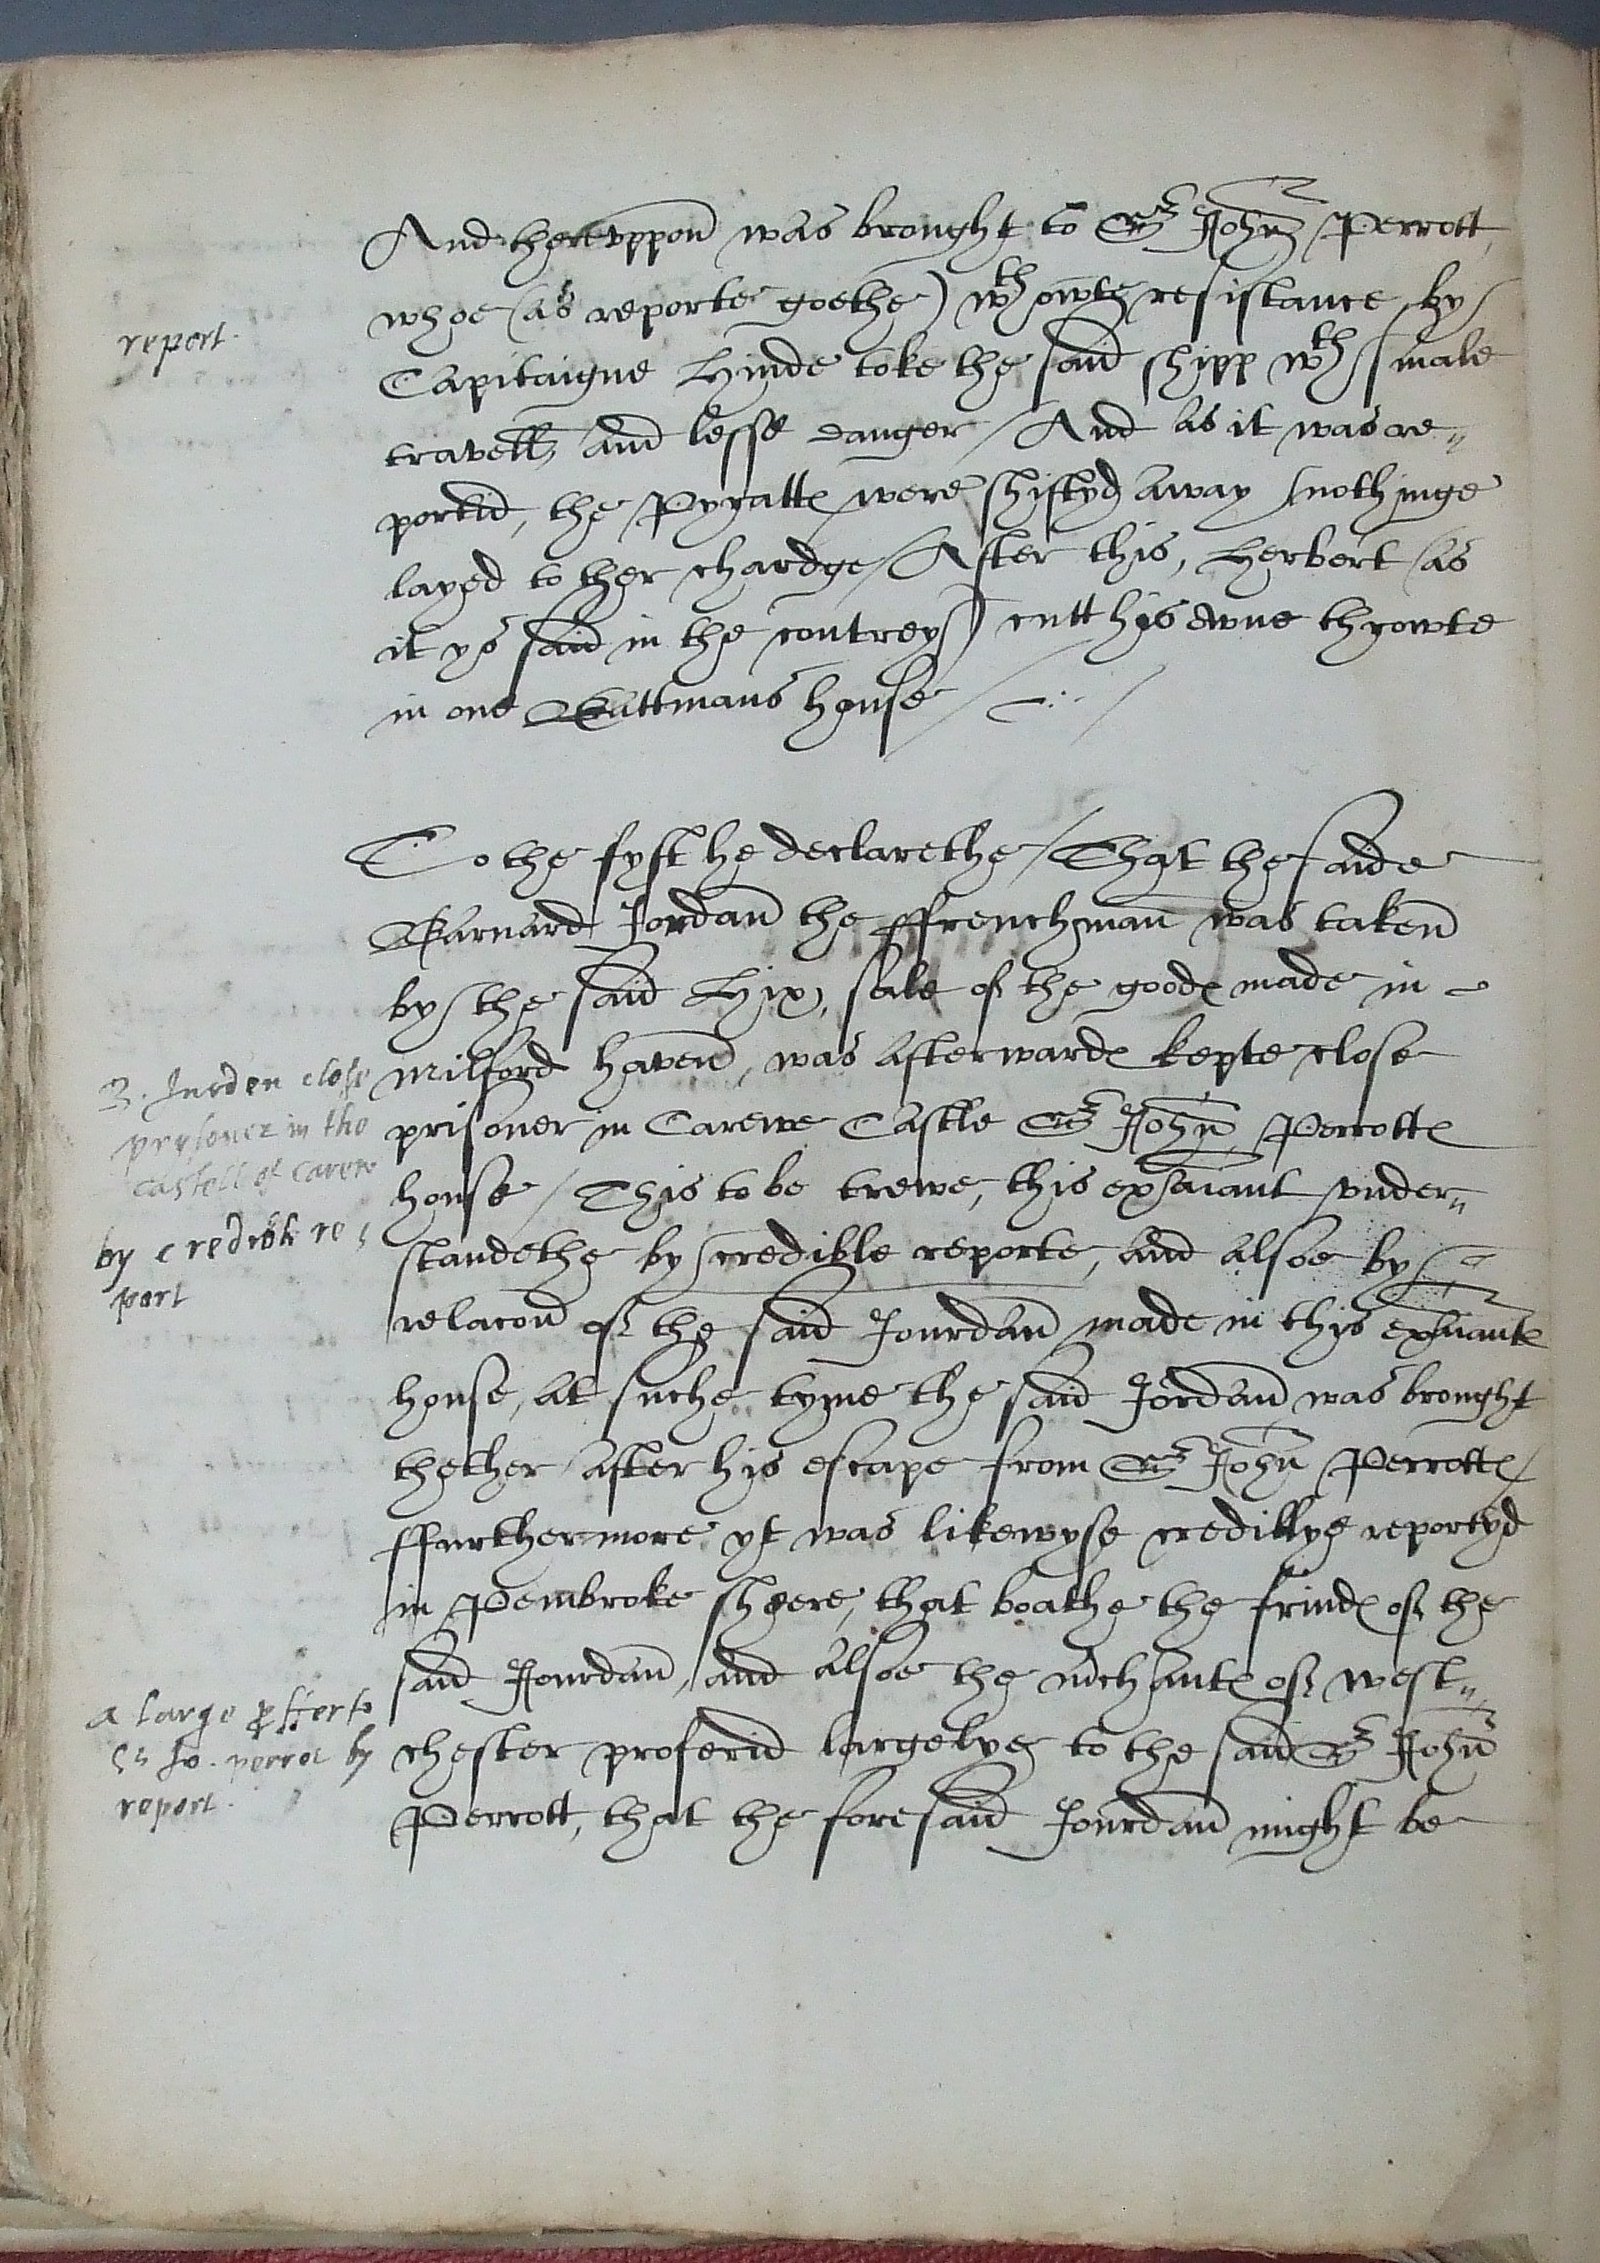 And thereuppon was brought to Sr John Perrott,
whoe (as reporte goethe) wth owte resistance by
report.
Capitaigne Hinde toke the said shipp wth smale
travell and lesse danger / And as it was re„
portid, the Pyratts were shiftyd away nothinge
layed to ther chardge / After this, Herbert (as
it ys said in the contrey) cutt his owne throwte
in one Battmans house /
To the fyft he declarethe / That the saide
Barnard Jordan the ffrenchman was taken
by the said Hix, sale of the goods made in
Milford haven, was afterwards kepte close
3. Jurden close
prysoner in the
castell of Carew
prisoner in Carewe Castle Sr John Perrotts
house / This to be trewe, this exaiant vnder„
by credible re
port
standethe by credible reporte, and alsoe by
relacon of the said Jourdan made in this exaiants
house, at suche tyme the said Jordan was brought
thether after his escape from Sr John Perrotts /
ffurthermore yt was likewyse crediblye reportyd
in Pembroke sheere, that boathe the frinds of the
said Jourdan, and alsoe the mchants of west„
a large proffer to
Sr Jo. perrot by
report.
chester proferid largelye to the said Sr John
Perrott, that the foresaid Jourdan might be